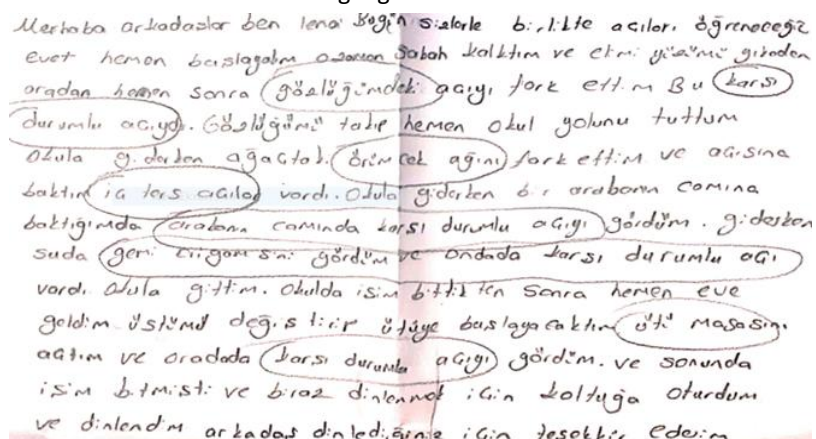 Merhaba arkadaslar ben lena Bugün sizlerle birlikte acıları öğreneceğiz
evet hemen baslayalım o zaman Sabah kalktım ve elimi yüzümü
aradan hemen sonra gözlüğümdeki açıyı fark ettim Bu karsı
durumlu açıydı. Gözlüğümü takıp hemen okul yolunu tuttum
Okula giderken ağactaki örümcek ağını fark ettim ve açısına
baktım iç ters açılar vardı. Okula giderken bir arabanın camına
baktığımda arabanın camında karsı durumlu açıyı gördüm. giderken
suda gemi gördüm ve ondada karsı durumlu açı
vardı Okula gittim. Okulda isim bittikten Sonra hemen eve
geldim üstümü değistirip ütüye baslayacaktım ütü masasını
açtım ve oradada karsı durumlu açıyı gördüm. ve sonunda
isim bitmisti ve biraz dinlenmek için koltuğa oturdum
ve dinlendim arkadas için tesekkür ederim